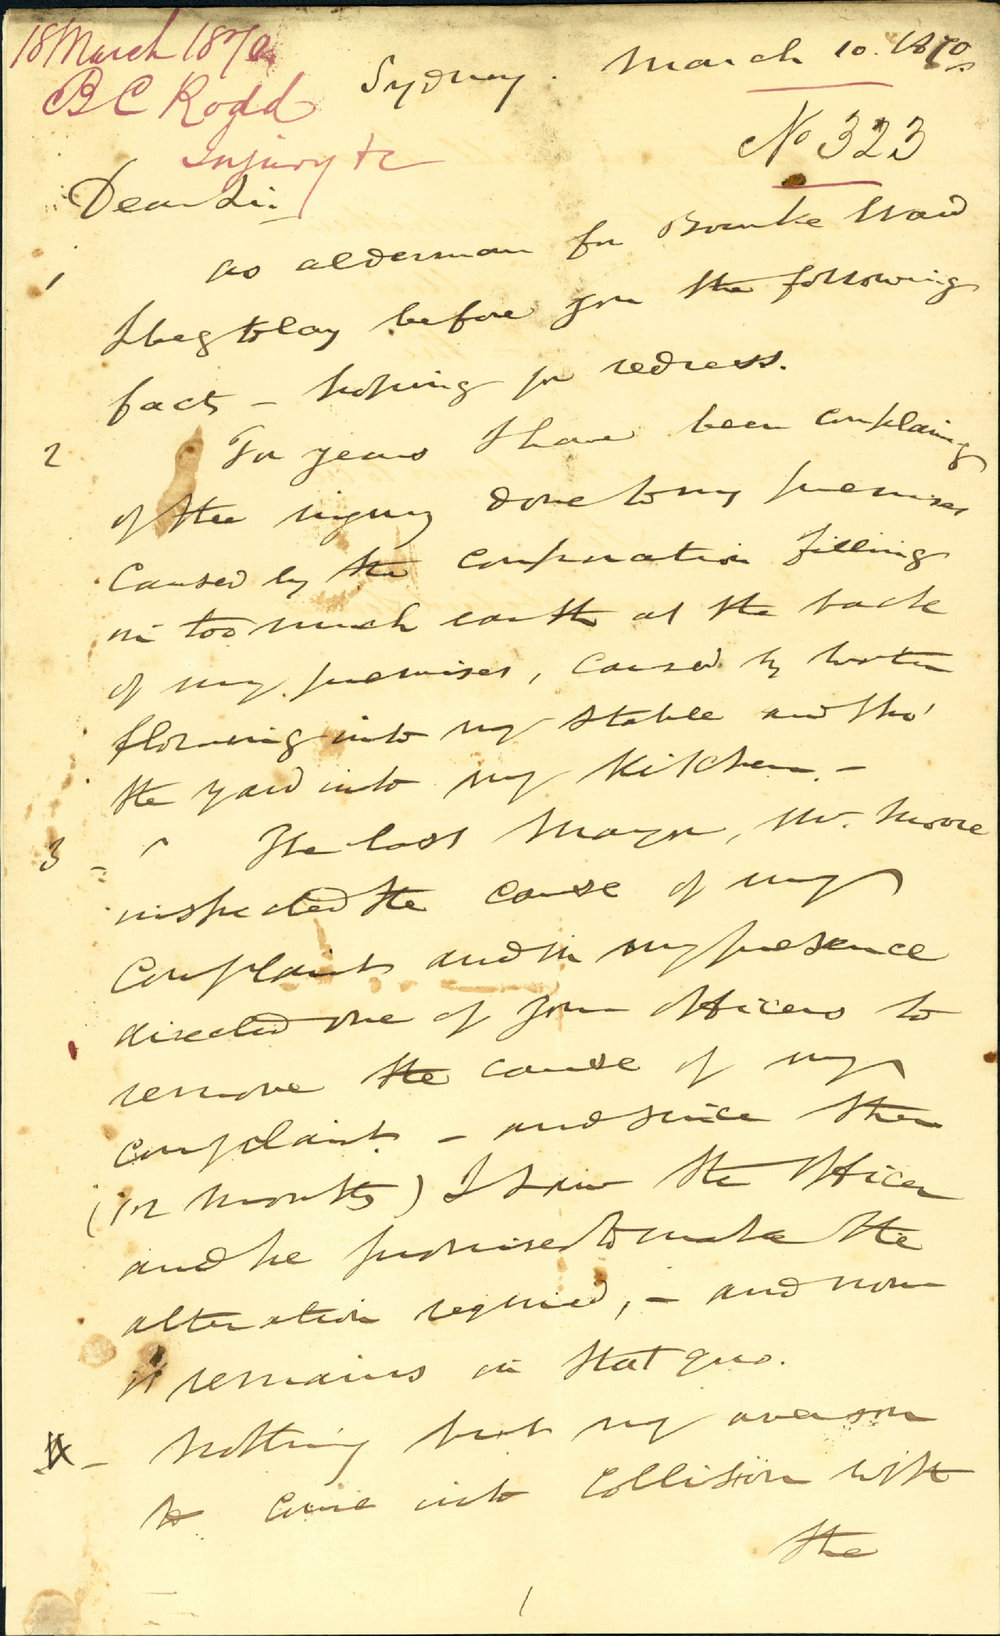 18 March 1870
B C Rodd
Injury &c
Sydney. March 10. 1870
No 323
Dear Sir
1 As alderman for Bourke Ward
I beg to lay before you the following
facts – hoping for redress.
2 For years I have been complaing
of the injury done to my premises
caused by the corporation filling
in too much earth at the back
of my premises, caused by water
flowing into my stable and thro'
the yard into my Kitchen. –
3 – The last Mayor, Mr. Moore
inspected the cause of my
complaint and in my presence
directed one of your officers to
remove the cause of my
complaint – and since then
(12 months) I saw the officer
and he promised to make the
alteration required, – and now
it remains in Stat quo.
4 – Nothing but my aversion
to come into collision with
the
1